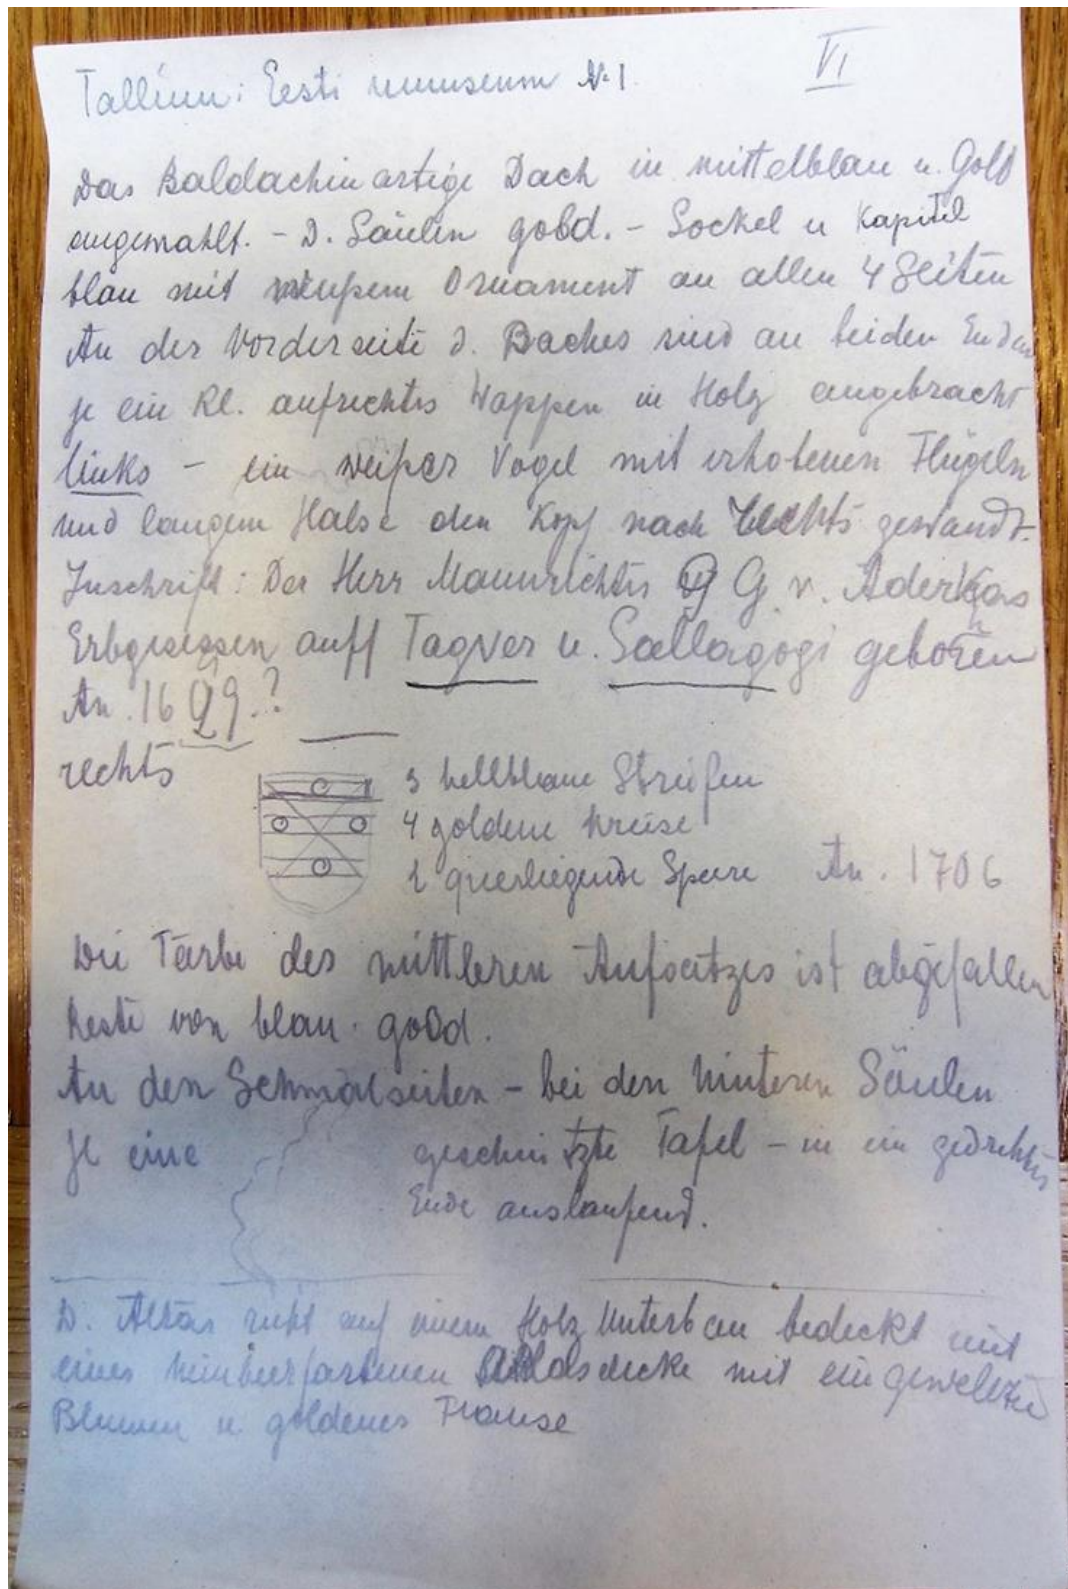 Tallinn: Eesti museum N. 1.
VI
Das Baldachinartige Dach in mittelblau u. Gold
angemahlt. - D. Säulen gold. - Sockel u Kapitel
blau mit weißem Ornament an allen 4 Seiten
An der Vorderseite d. Daches sind an beiden Enden
je ein Kl. aufrechtes Wappen in Holz angebracht
links - ein weißer Vogel mit erhobenen Flügeln
und langem Halse den Kopf nach rechts gewandt.
Inschrift: Der Herr Mannrichter G. v. Aderkas
Erbgesessen auff Tagver u. Sallagogi geboren
An. 1699.?
rechts
3 hellblaue Streifen
4 goldene Kreise
2 querliegende Speere An. 1706
Die Farbe des mittleren Aufsatzes ist abgefallen
Reste von blau. gold.
An den Schmalseiten - bei den hinteren Säulen
je eine geschnitzte Tafel - in ein gedrehtes
Ende auslaufend.
D. Altar ruht auf einem Holz Unterbau bedeckt mit
einer himbeerfarbenen decke mit eingewebten
Blumen u goldener Franse